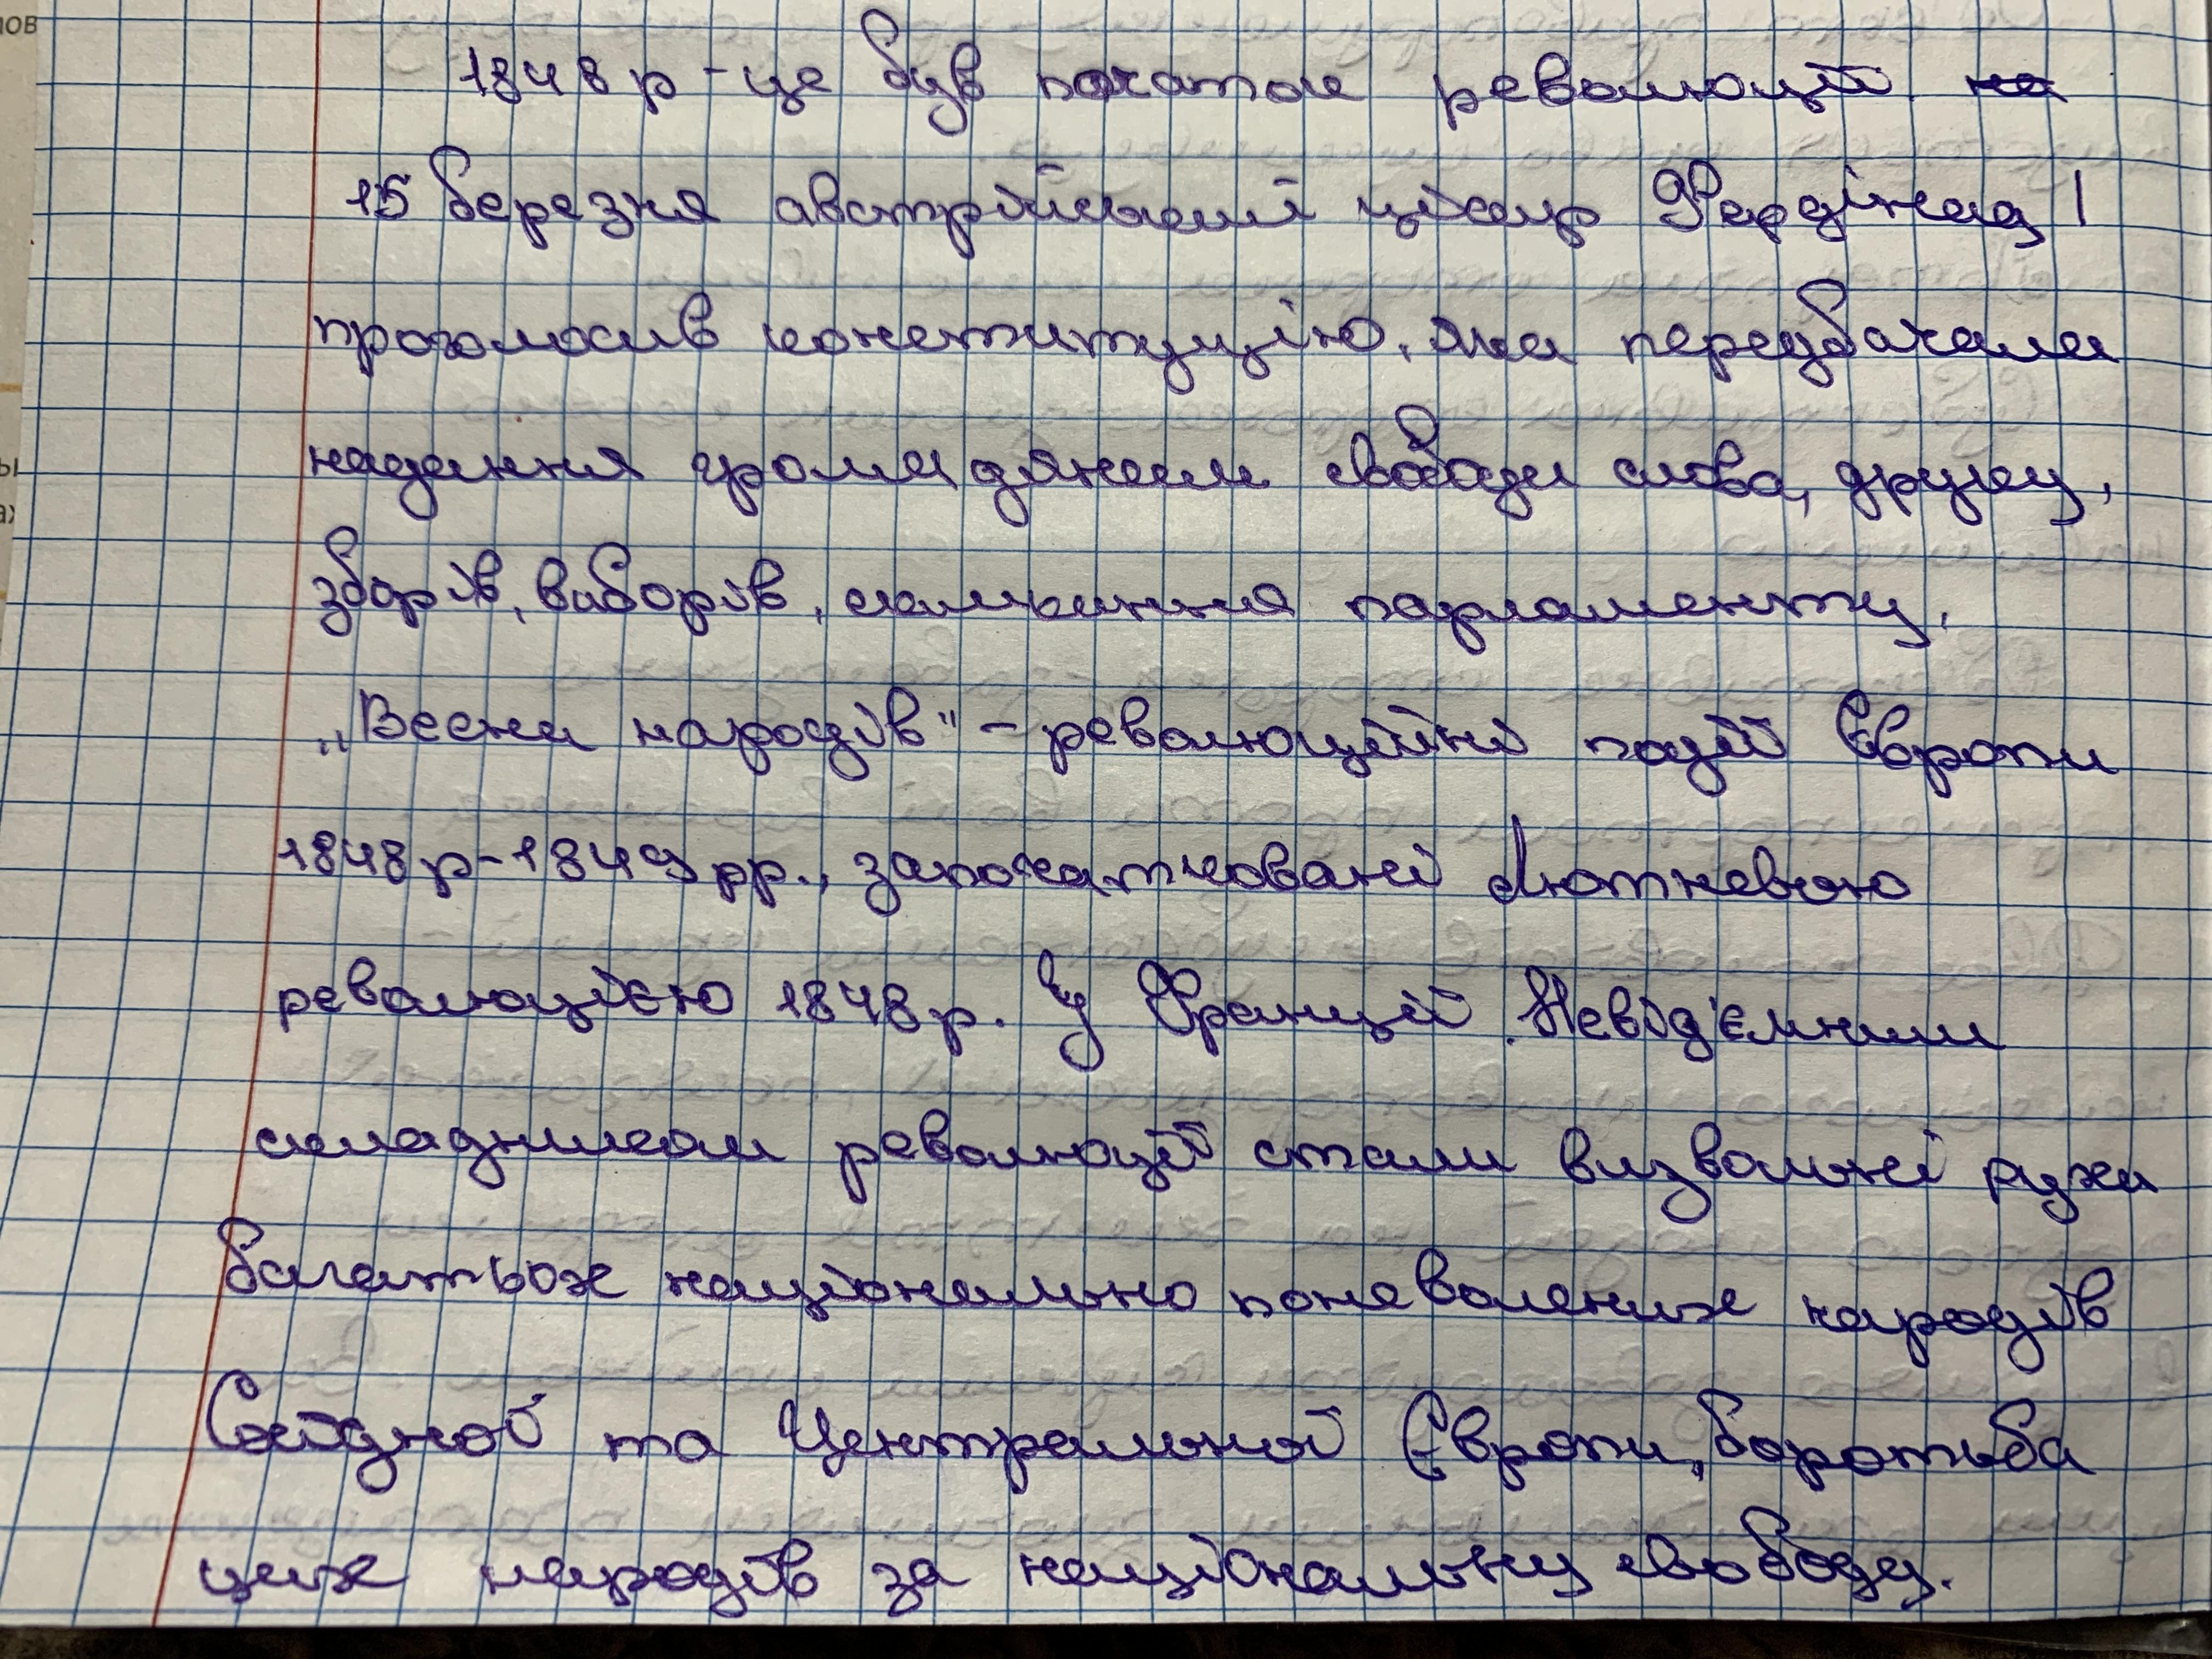 1848 р - це був початок революцій на
15 березня австрійський цісар Фердінад I
проголосив конституцію, яка передбачала
надання громадянам свободи слова, друку,
зборів, виборів, скликання парламенту.
„Весна народів" - революційні події Європи
1848 р - 1849 рр., започатковані Лютневою
революцією 1848 р. У Франції. Невід'ємним
складником революцій стали визвольні рухи
багатьох національно поневолених народів
Східної та Центральної Європи, боротьба
цих народів за національну свободу.